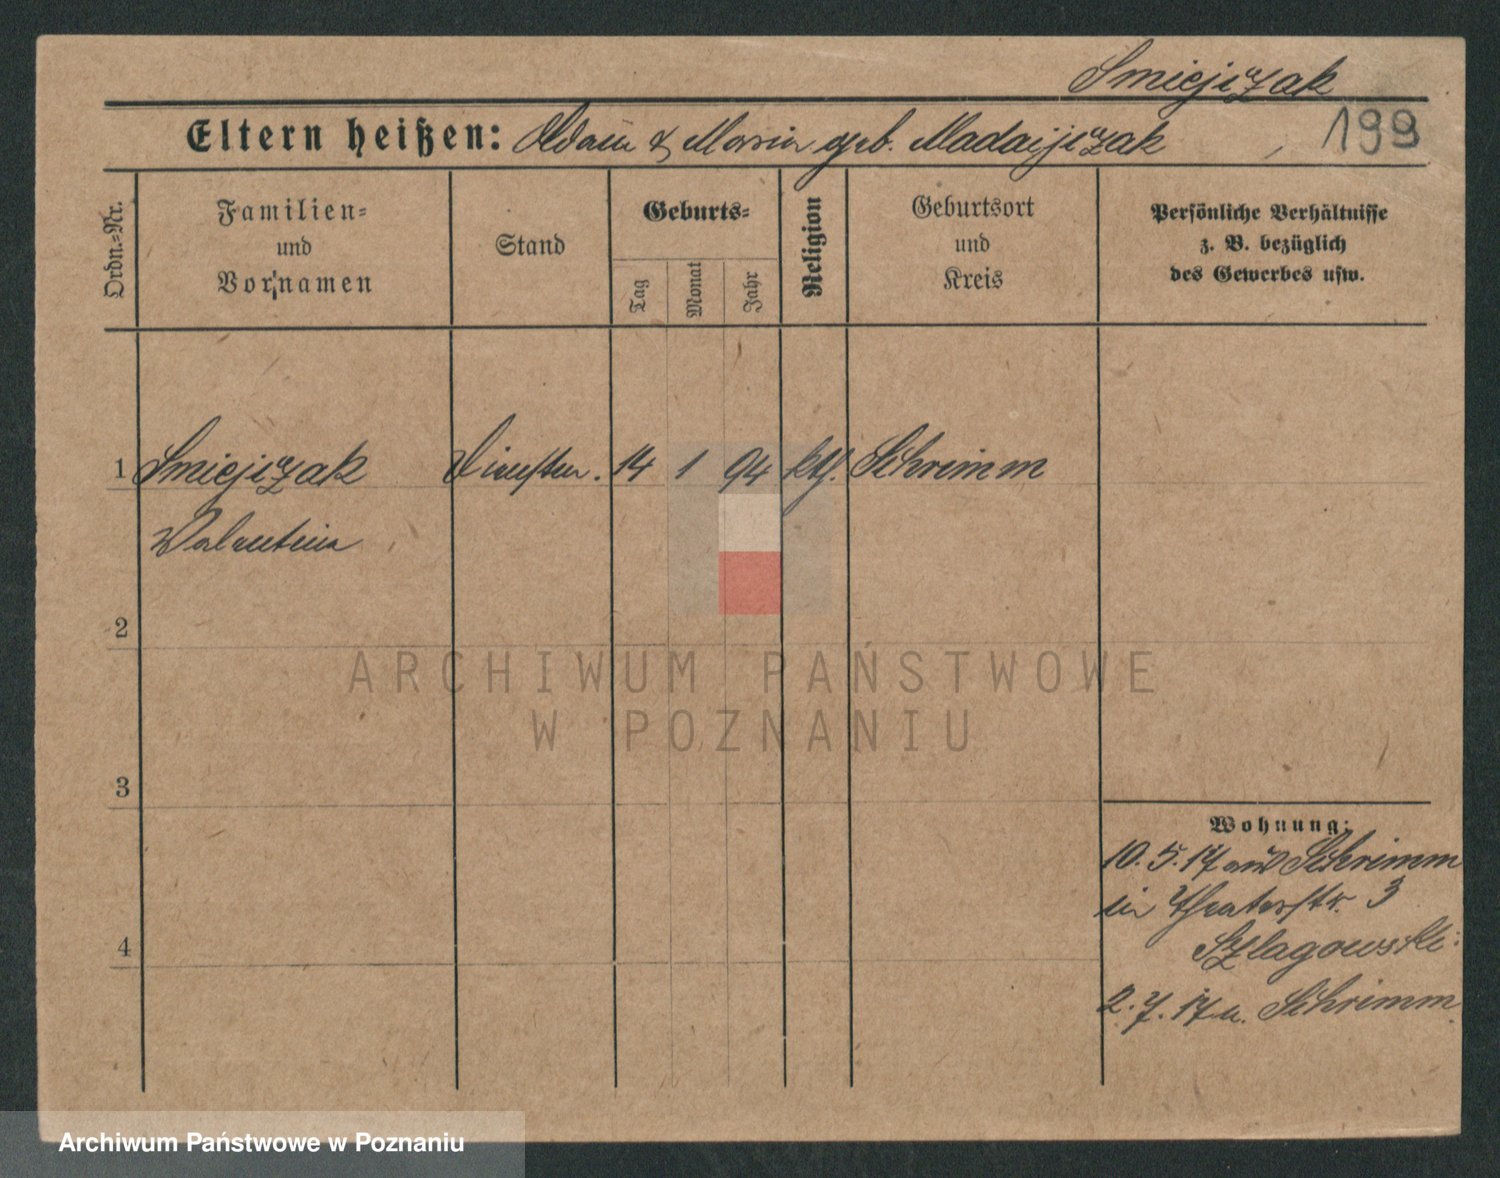 Smiejczak
Eltern heißen: Adam & Maria geb. Madaijczak
199
Ordn.=Nr.
Familien=
und
Vornamen
Stand
Geburts=
Tag
Monat
Jahr
Religion
Geburtsort
und
Kreis
Persönliche Verhältnisse
z. B. bezüglich
des Gewerbes usw.
1 Smiejczak 14 1 94 kth. Schrimm
Valentina
2
ARCHIWUM PAŃSTWOWE
W POZNANIU
3
Wohnung:
10. 5. 17 aus Schrimm
in Theaterstr. 3
Szlagowski
4
2. 7. 17 n. Schrimm
Archiwum Państwowe w Poznaniu